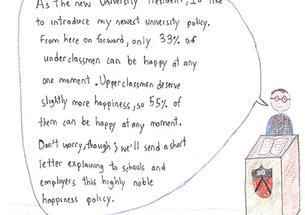 As the new University President, I'd like
to introduce my newest university policy.
From here on forward, only 33% of
underclassmen can be happy at any
one moment. Upperclassmen deserve
slightly more happiness, so 55% of
them can be happy at any moment.
Don't worry, though; we'll send a short
letter explaining to schools and
employers this highly noble
happiness policy.